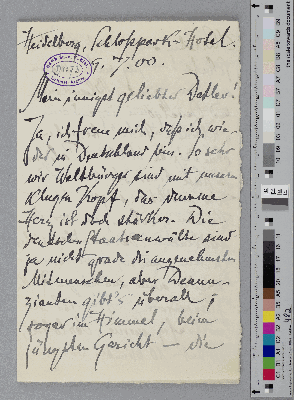 Heidelberg, Schlosspark-Hotel.
9. 7. 00.
Mein innigst geliebter Detlev!
Ja, ich freue mich, dass ich wie-
der in Deutschland bin. So sehr
wir Weltbürger sind mit unserm
klugen Kopf, das dumme
Herz ist doch stärker. Die
deutschen Staatsanwälte sind
ja nicht grade die angenehmsten
Mitmenschen, aber Denun-
zianten gibt's überall,
sogar im Himmel, beim
jüngsten Gericht — die